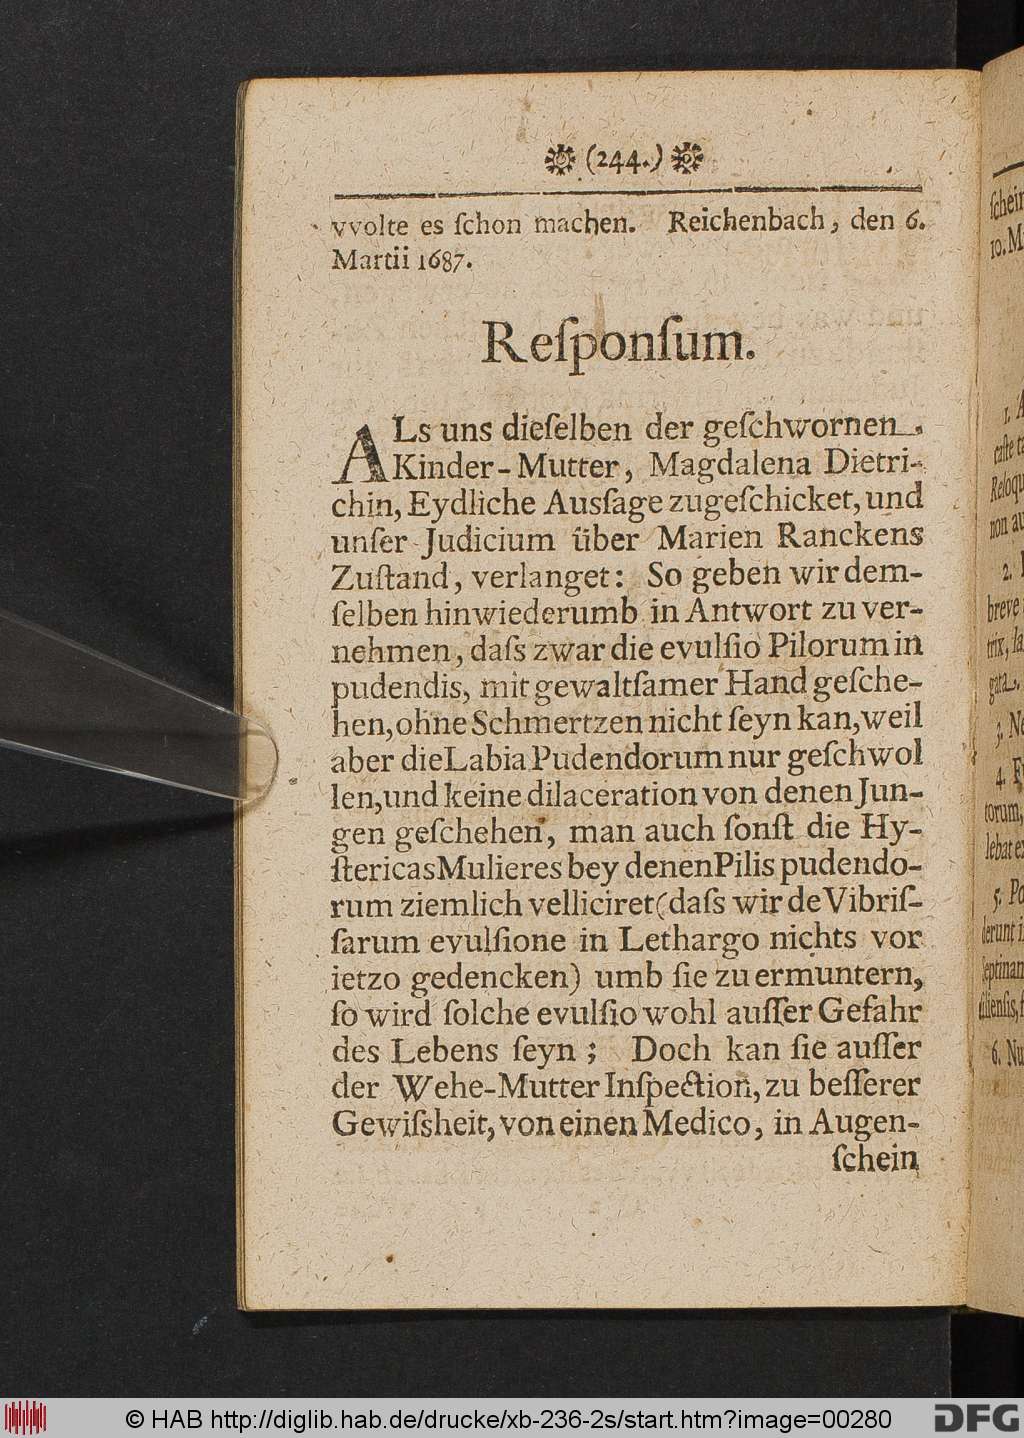 (244.)
vvolte es ſchon machen. Reichenbach, den 6.
Martii 1687.
Reſponſum.
ALs uns dieſelben der geſchwornen
Kinder-Mutter, Magdalena Dietri-
chin, Eydliche Ausſage zugeſchicket, und
unſer Judicium über Marien Ranckens
Zuſtand, verlanget: So geben wir dem-
ſelben hinwiederumb in Antwort zu ver-
nehmen, daſs zwar die evulſio Pilorum in
pudendis, mit gewaltſamer Hand geſche-
hen, ohne Schmertzen nicht ſeyn kan, weil
aber die Labia Pudendorum nur geſchwol
len, und keine dilaceration von denen Jun-
gen geſchehen, man auch ſonſt die Hy-
ſtericas Mulieres bey denen Pilis pudendo-
rum ziemlich velliciret (daſs wir de Vibriſ-
ſarum evulſione in Lethargo nichts vor
ietzo gedencken) umb ſie zu ermuntern,
ſo wird ſolche evulſio wohl auſſer Gefahr
des Lebens ſeyn; Doch kan ſie auſſer
der Wehe-Mutter Inſpection, zu beſſerer
Gewiſsheit, von einen Medico, in Augen-
ſchein
ſchein
10. M
1. A
2.
breve
trix, ſa
gata
3. Ne
4. F
torum,
lebat e
5. Po
derunt i
6. Nu
© HAB http://diglib.hab.de/drucke/xb-236-2s/start.htm?image=00280
DFG